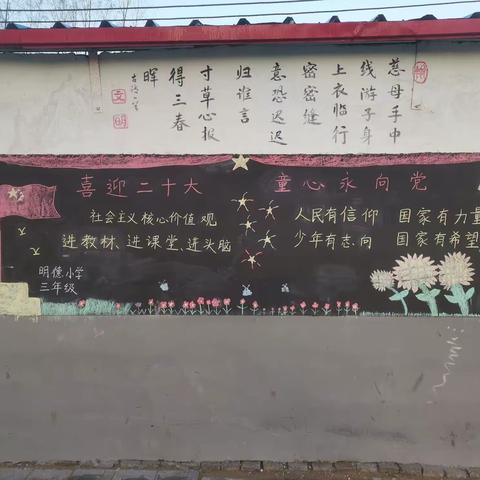 慈母手中
线游子身
上衣临行
密密缝
意恐迟迟
归谁言
寸草心报
得三春
晖
文明
喜迎二十大 童心永向党
社会主义核心价值观
进教材、进课堂、进头脑
人民有信仰 国家有力量
少年有志向 国家有希望
明德小学
三年级